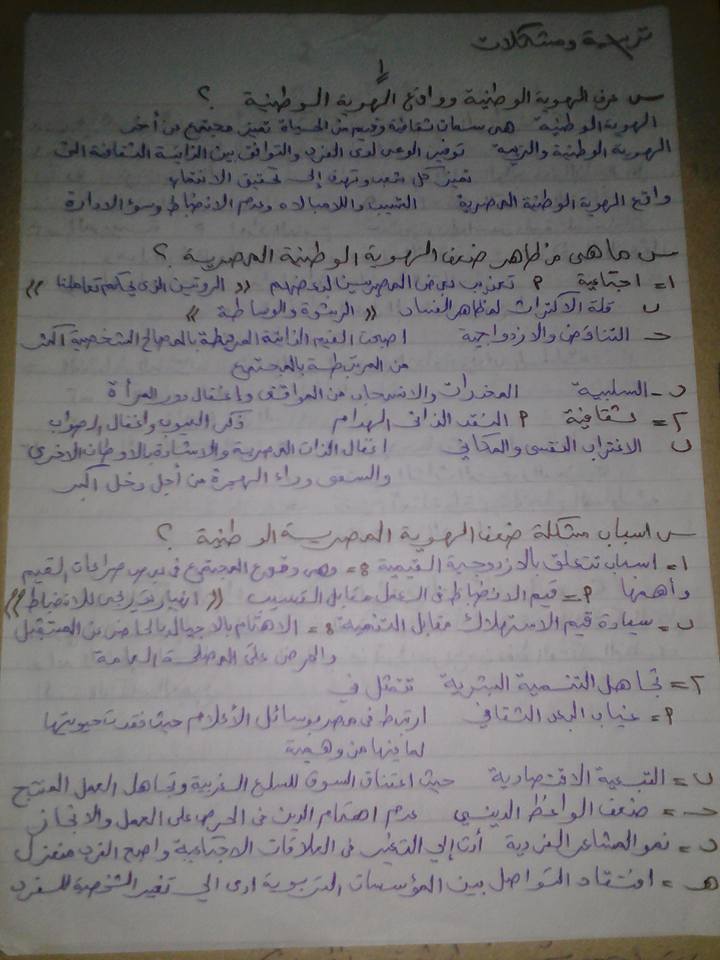 تربية ومشكلات
١
س عرف الهوية الوطنية وواقع الهوية الوطنية ؟
الهوية الوطنية هى سمات ثقافة وقيم من الحياة تميز مجتمع عن أخر
الهوية الوطنية والتربية توفير الوعى لدى الفرد والتوافق بين الذاتية الثقافة التى
تميز كل شعب وتهدف إلى تحقيق الانتماء
واقع الهوية الوطنية المصرية التسيب واللامبالاه وعدم الانضباط وسوء الادارة
س ما هى مظاهر ضعف الهوية الوطنية المصرية ؟
١= اجتماعية أ تعذيب بعض المصريين لبعضهم (( الروتين الذى يحكم تعاملنا ))
ب قلة الاكتراث لمظاهر الفساد (( الرشوة والوساطة ))
حـ التناقض والازدواجية اصبحت القيم الذاتية المرتبطة بالمصالح الشخصية اكثر
من المرتبطة بالمجتمع
د - السلبية المخدرات والانسحاب من المواقف واغفال دور المرأة
٢= ثقافية أ النقد الذاتى الهدام ذكر العيوب واغفال الصواب
ب الاغتراب النفسى والمكانى اغفال الذات المصرية والاشادة بالاوطان الاخرى
والسعى وراء الهجرة من أجل دخل اكبر
س اسباب مشكلة ضعف الهوية المصرية الوطنية ؟
١= اسباب تتعلق بالازدوجية القيمية := وهى وقوع المجتمع فى بعض صراعات القيم
وأهمها أ= قيم الانضباط فى العمل مقابل التسيب (( انهيار تدريجى للانضباط ))
ب= سيادة قيم الاستهلاك مقابل التنمية := الاهتمام بالاجيال بالحاضر عن المستقبل
والحرص على المصلحة العامة
٢= تجاهل التنمية البشرية تتمثل في
أ= غياب البعد الثقافي ارتبط فى مصر بوسائل الأعلام حيث فقدت حيويتها
لما ينها من وهمية
ب= التبعية الاقتصادية حيث اعتناق السوق للسلع الغربية وتجاهل العمل المنتج
حـ= ضعف الواعظ الدينى عدم اهتمام الدين فى الحرص على العمل والانجاز
د= نمو المشاعر الفردية أدت إلى التغير فى العلاقات الاجتماعية واصبح الفرد منعزل
هـ= افتقاد التواصل بين المؤسسات التربوية ادى الي تغير الشخصية للفرد